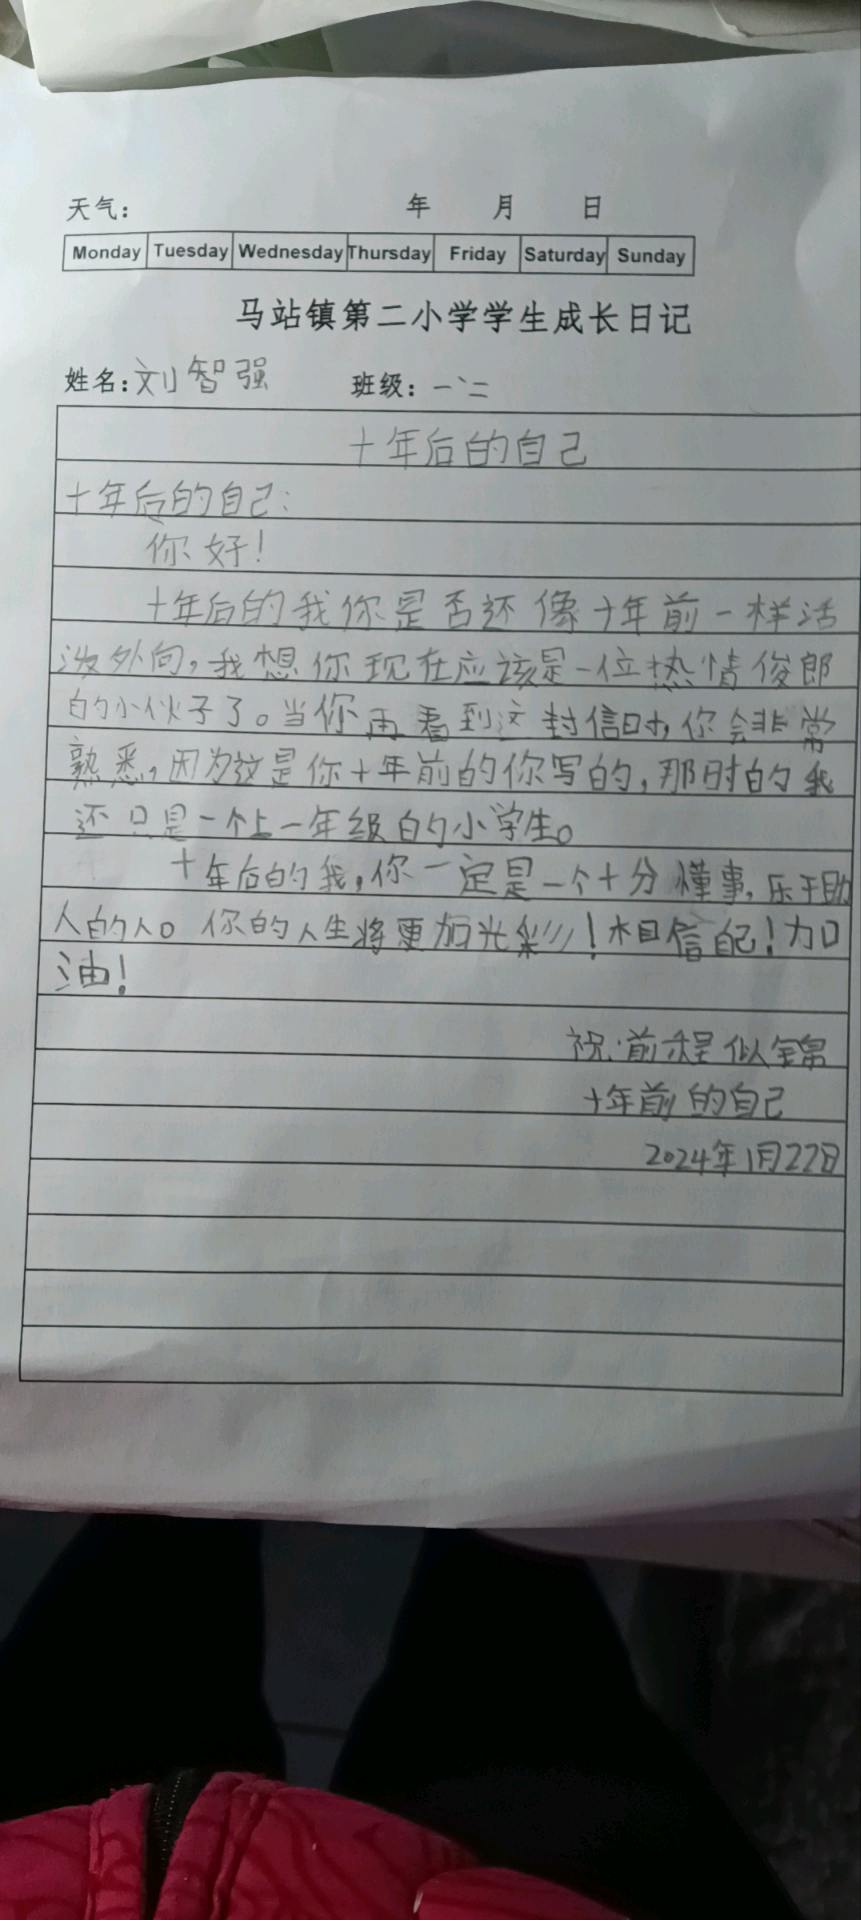 天气: 年 月 日
Monday Tuesday Wednesday Thursday Friday Saturday Sunday
马站镇第二小学学生成长日记
姓名:刘智强 班级:一、二
十年后的自己
十年后的自己:
你好!
十年后的我你是否还像十年前一样活
泼外向,我想你现在应该是一位热情俊郎
的小伙子了。当你再看到这封信时,你会非常
熟悉,因为这是你十年前的你写的,那时的我
还只是一个上一年级的小学生。
十年后的我,你一定是一个十分懂事,乐于助
人的人。你的人生将更加光彩!相信自己!加
油!
祝:前程似锦
十年前的自己
2024年1月22日